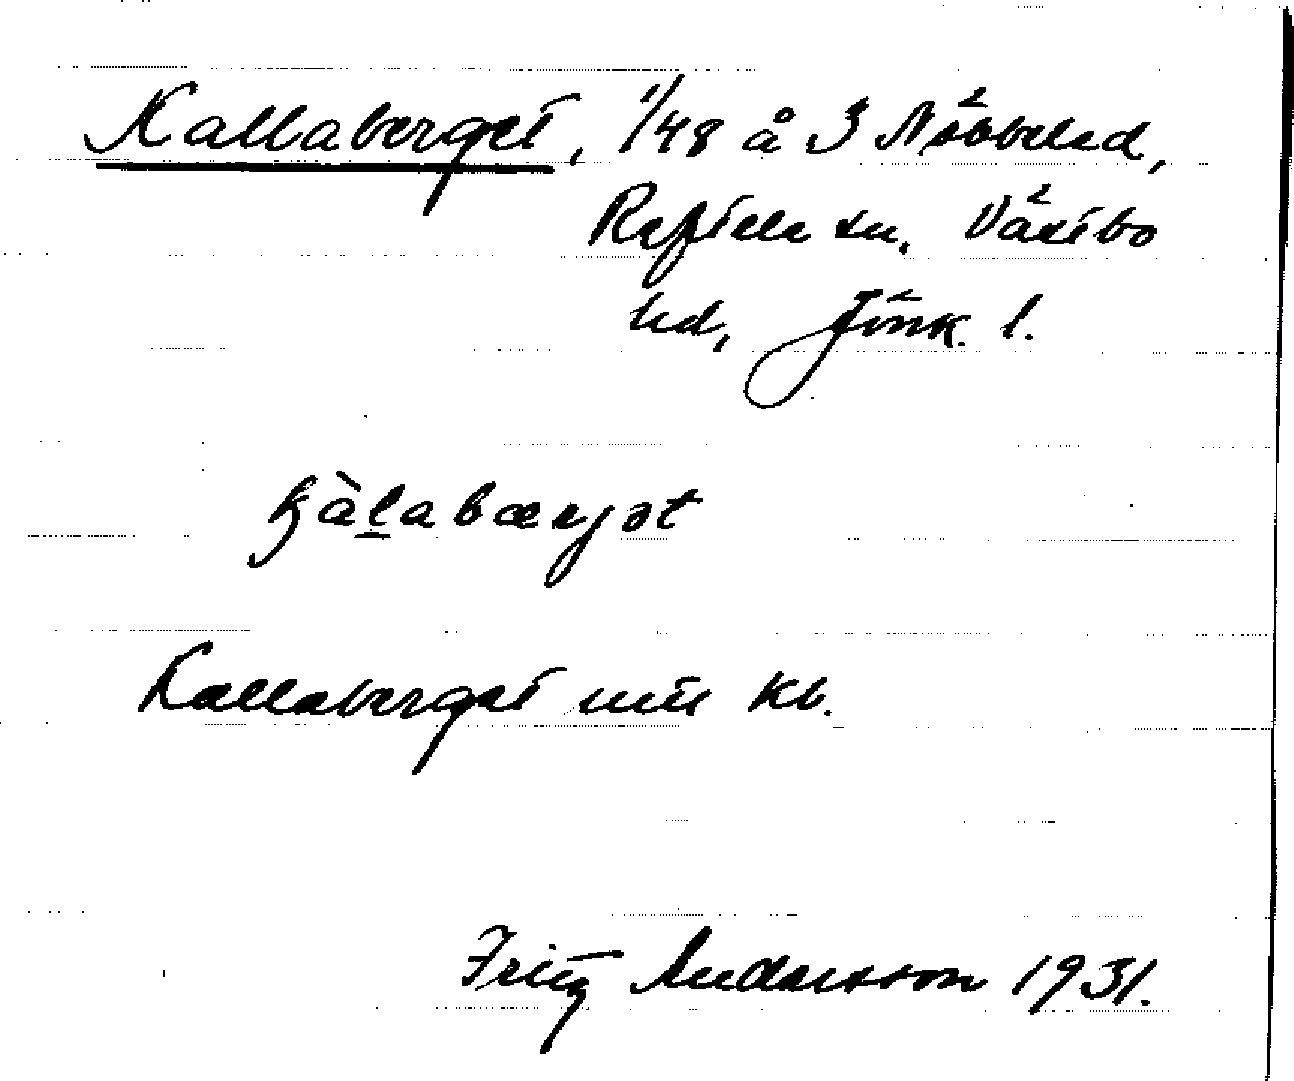 Kallaberget, 1/48 å 3 Nöbbeled,
Reftele sn, Västbo
hd, Jönk. l.
kàlabærjət
Kallaberget mtu Kb.
Fritz Andersson 1931.